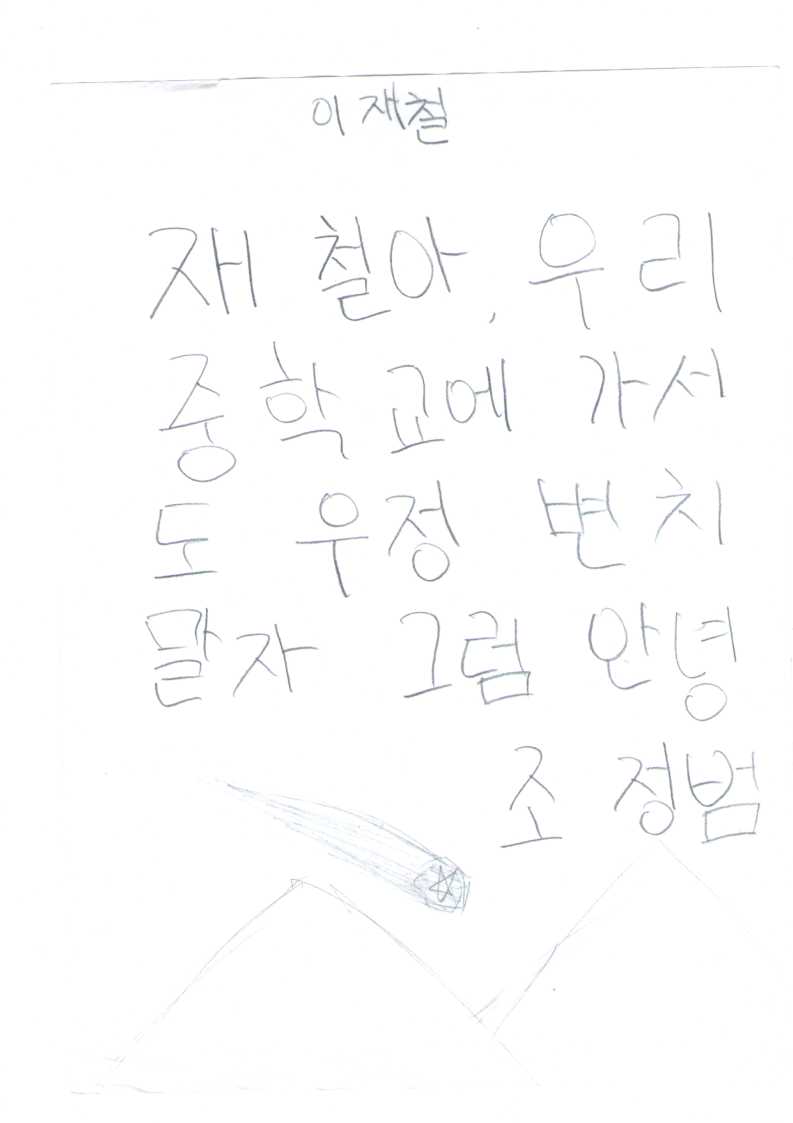 이재철
재철아, 우리
중학교에 가서
도 우정 변치
말자 그럼 안녕
조정범